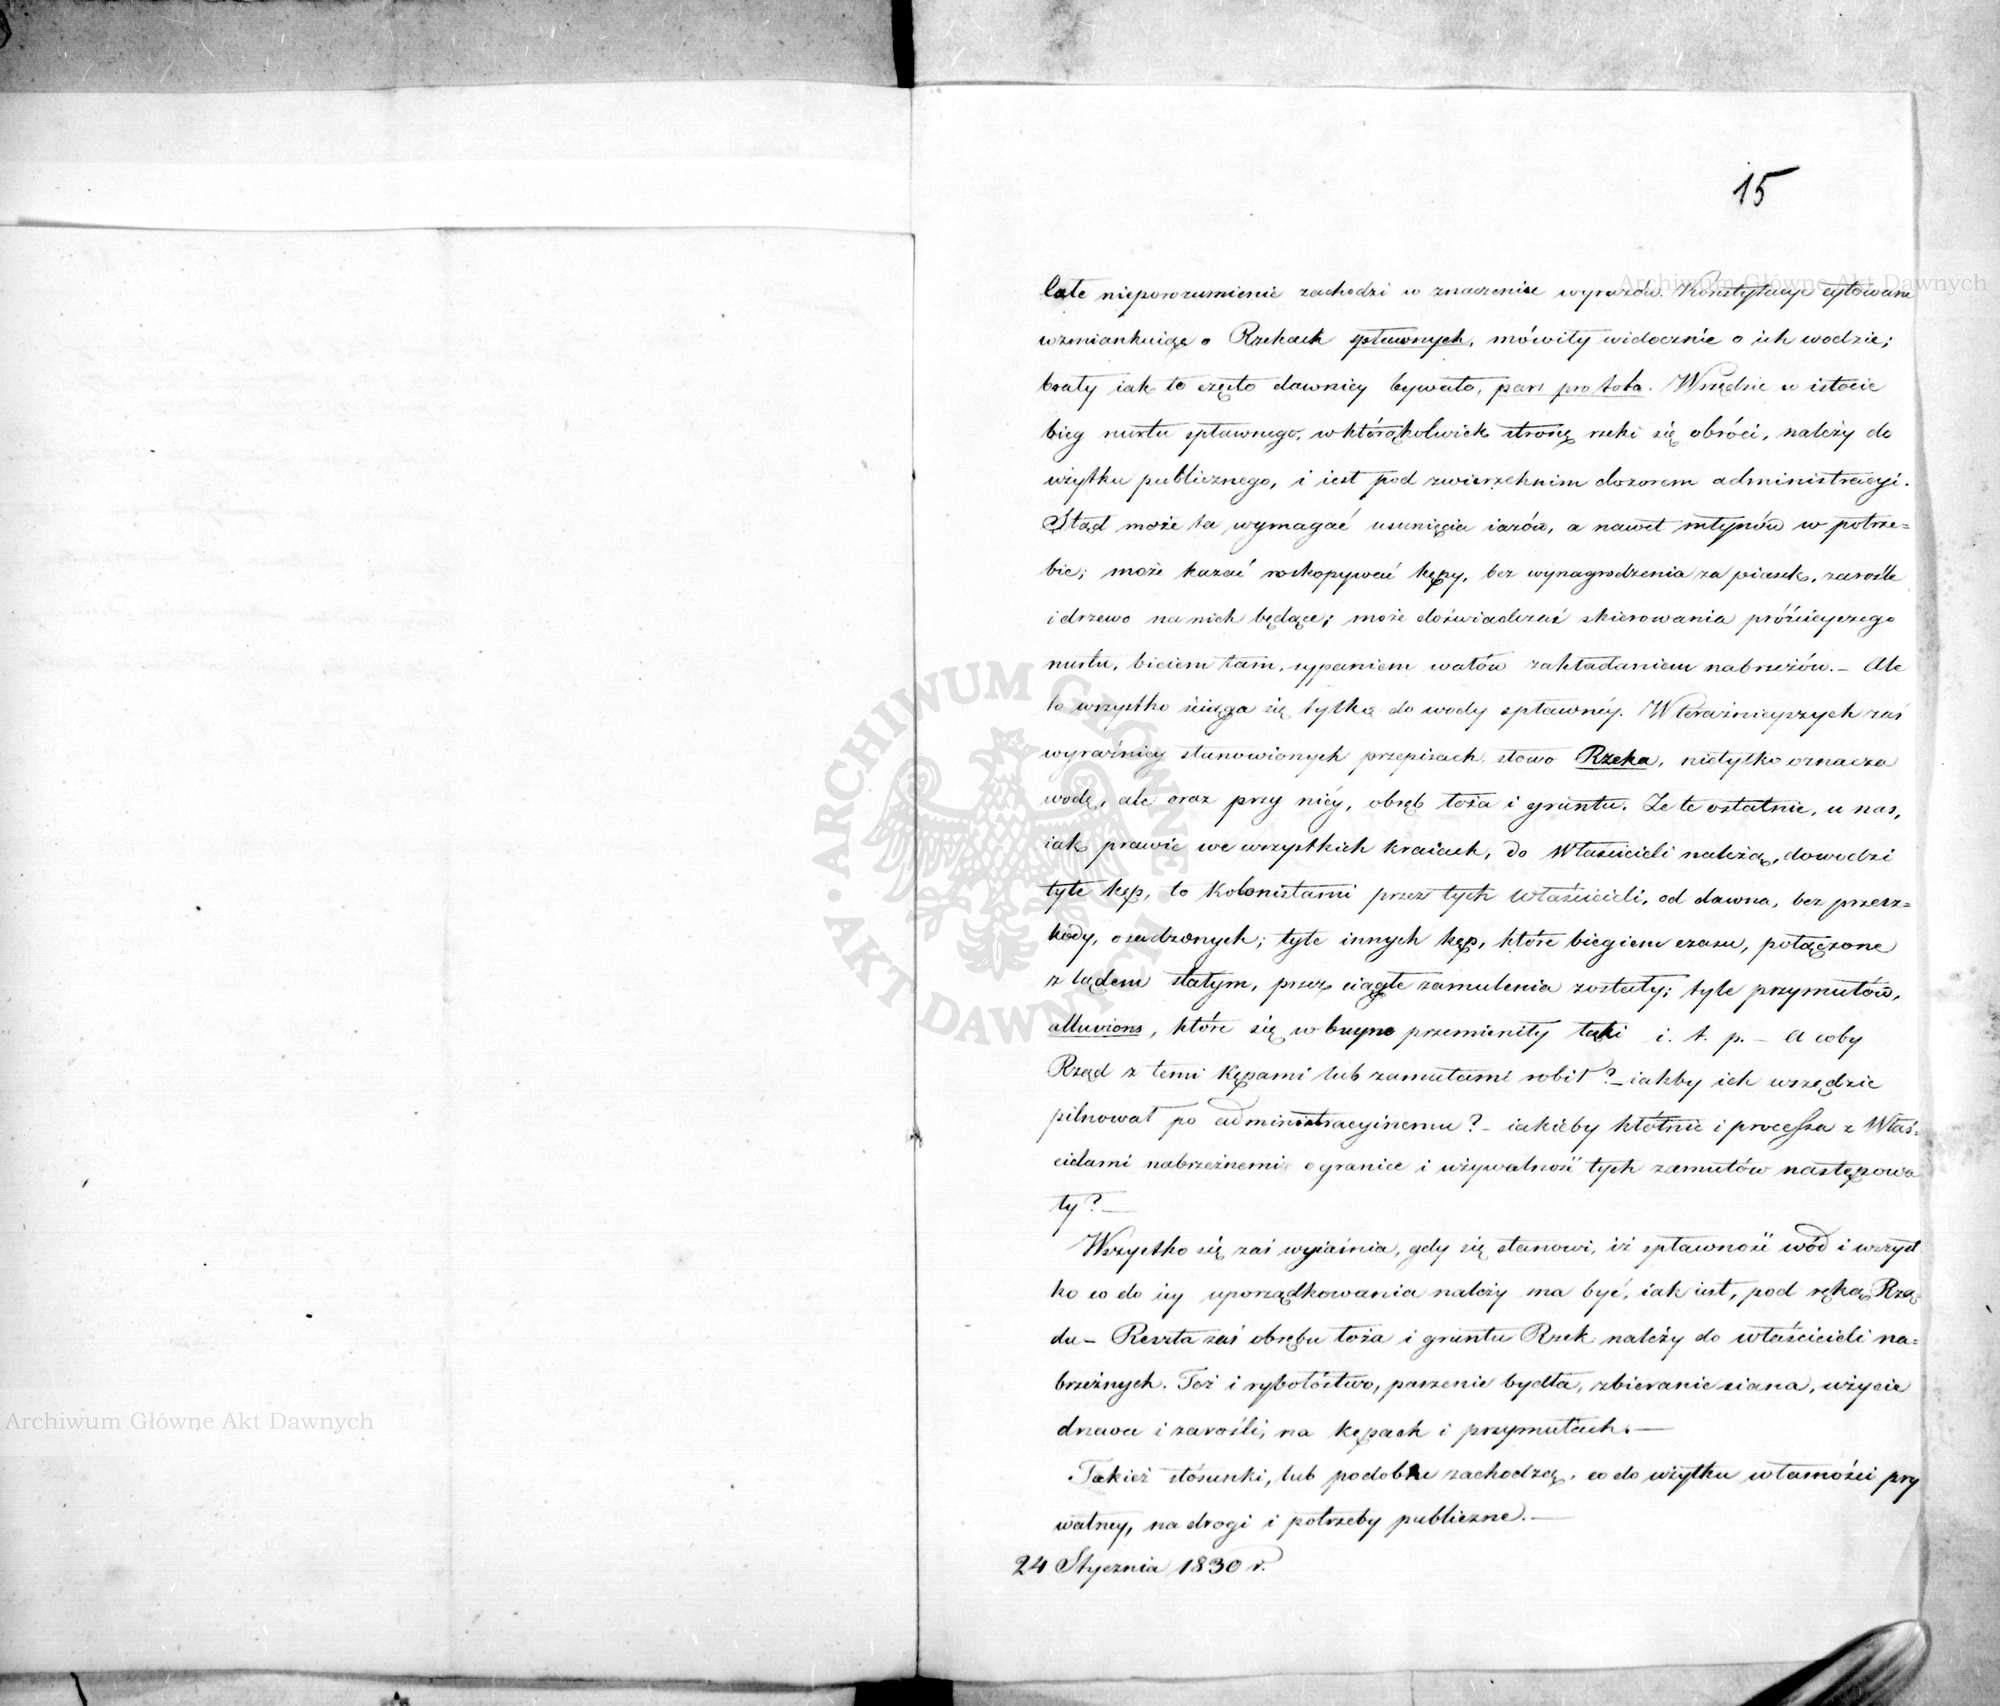 15
Całe nieporozumienie zachodzi w znaczeniu wyrazów. Konstytucye cytowane
wzmiankuiąc o Rzekach spławnych, mówiły widocznie o ich wodzie;
brały iak to często dawniey bywało, pars pro tota. Wszędzie w istocie
bieg nurtu spławnego, w którąkolwiek stronę rzeki się obróci, należy do
użytku publicznego, i iest pod zwierzchnim dozorem administracyi.
Ztąd może ta wymagać usunięcia iazów, a nawet młynów w potrze=
bie; może kazać roskopywać kępy, bez wynagrodzenia za piasek, zarośle
i drzewo na nich będące; może doświadczać skierowania próżnieyszego
nurtu, biciem tam, sypaniem wałów zakładaniem nabrzeżów. – Ale
to wszystko ściąga się tylko do wody spławnéy. W teraźnieyszych zaś
wyraźniey stanowionych przepisach, słowo Rzeka, nietylko oznacza
wodę, ale oraz przy niéy, obręb łoża i gruntu. Że te ostatnie, u nas,
iak prawie we wszystkich kraiach, do Właścicieli należą, dowodzi
tyle kęp, to Kolonistami przez tych Właścicieli, od dawna, bez przesz=
kody, osadzonych; tyle innych kęp, które biegiem czasu, połączone
z lądem stałym, przez ciągłe zamulenia zostały; tyle przymułów,
alluvions, które się w buyne przemieniły łąki i. t. p. – A coby
Rząd z temi Kępami lub zamułami robił? – iakby ich wszędzie
pilnował po administracyinemu? – iakieby kłótnie i processa z Właś=
cielami nabrzeżnemi o granice i używalność tych zamułów następowa
ły? —
Wszystko się zaś wyiaśnia, gdy się stanowi, iż spławność wód i wszyst
ko co do iey uporządkowania należy ma być, iak iest, pod ręką Rzą
du – Reszta zaś obrębu łoża i gruntu Rzek należy do właścicieli na=
brzeżnych. Toż i rybołóstwo, paszenie bydła, zbieranie siana, użycie
drzewa i zarośli, na kępach i przymułach. —
Takież stósunki, lub podobne zachodzą, co do użytku własności pry
watney, na drogi i potrzeby publiczne. —
24 Stycznia 1830 r.
Archiwum Główne Akt Dawnych
ARCHIWUM GŁÓWNE AKT DAWNYCH
Archiwum Główne Akt Dawnych